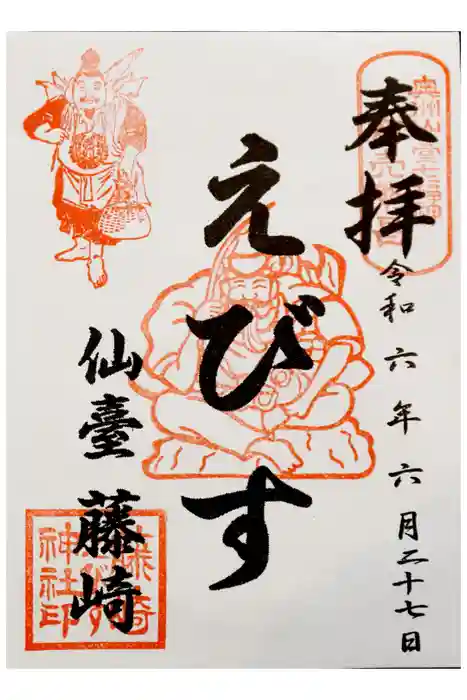 奉拝
令和六年六月二十七日
えびす
仙臺
藤崎
神社印